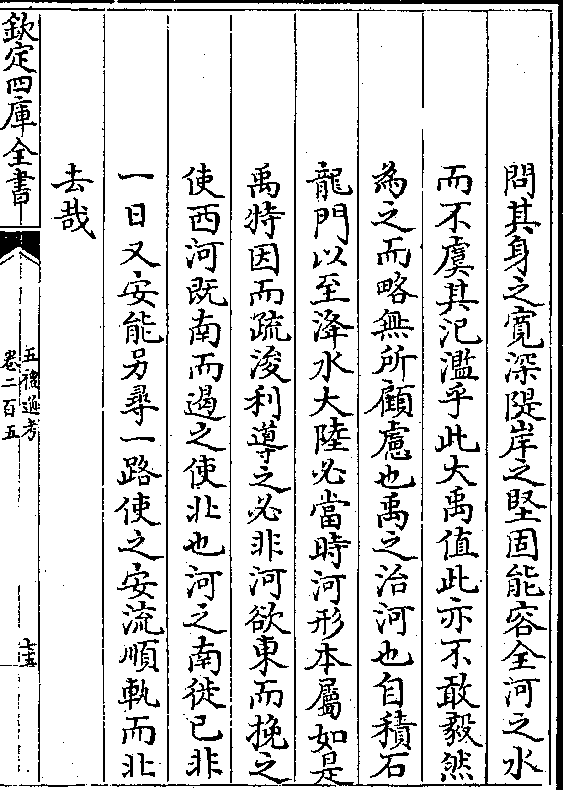 問其身之寛深隄岸之堅固能容全河之水
而不虞其汜濫乎此大禹值此亦不敢毅然
為之而略無所顧慮也禹之治河也自積石
龍門以至洚水大陸必當時河形本屬如是
禹特因而疏浚利導之必非河欲東而挽之
使西河既南而遏之使北也河之南徙已非
一日又安能另尋一路使之安流順軌而北
去哉
欽定四庫全書
五禮通考
卷二百五
十五